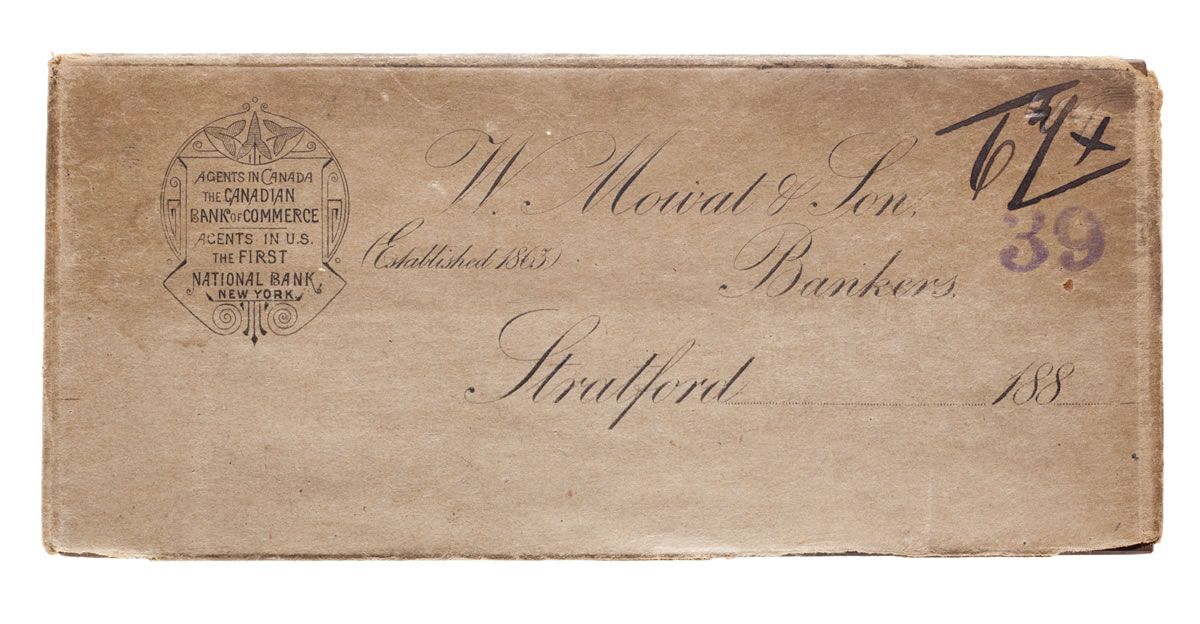 AGENTS IN CANADA
THE CANADIAN
BANK OF COMMERCE
AGENTS IN U.S.
THE FIRST
NATIONAL BANK
NEW YORK.
W. Mowat & Son,
(Established 1863)
Bankers,
Stratford 188
39